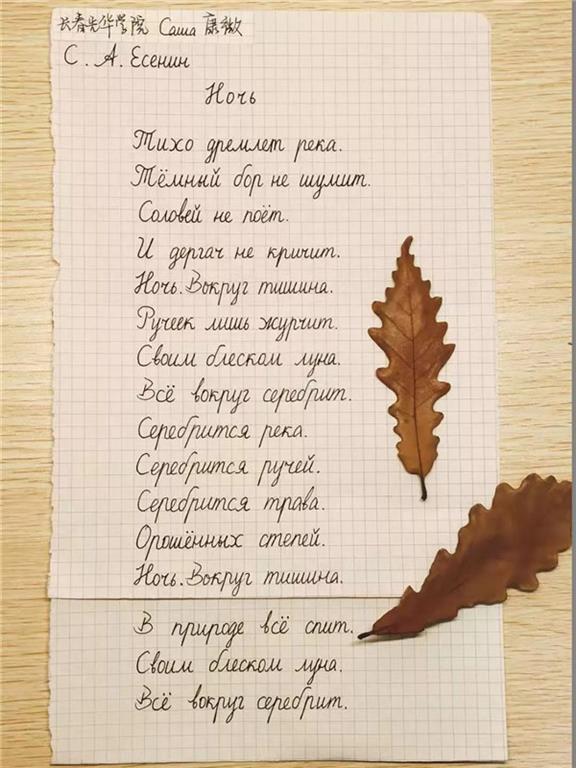 长春光华学院 Саша 康微
С. А. Есенин
Ночь
Тихо дремлет река.
Тёмный бор не шумит.
Соловей не поёт.
И дергач не кричит.
Ночь. Вокруг тишина.
Ручеек лишь журчит.
Своим блеском луна.
Всё вокруг серебрит.
Серебрится река.
Серебрится ручей.
Серебрится трава.
Орошённых степей.
Ночь. Вокруг тишина.
В природе всё спит.
Своим блеском луна.
Всё вокруг серебрит.